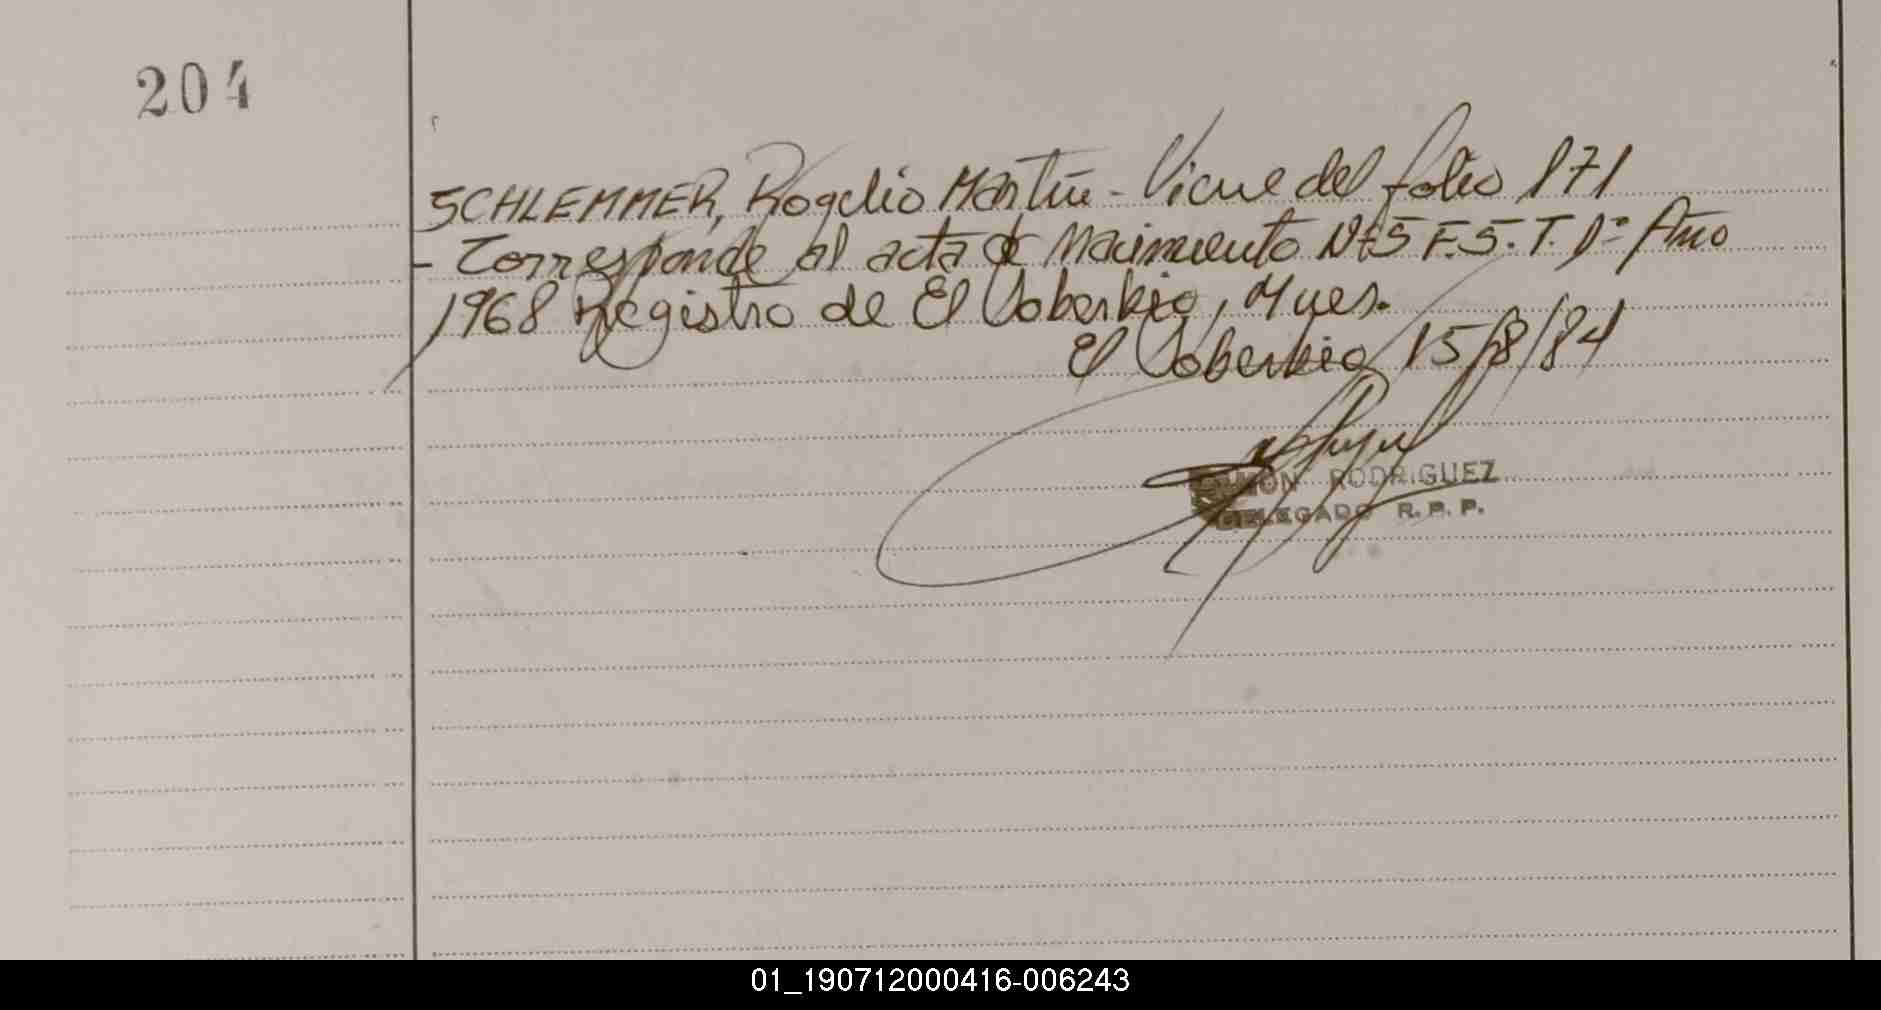 204
SCHLEMMER, Rogelio Martín - Viene del folio 171
- Corresponde al acta de Nacimiento Nº5 F.5. T. 1º Año
1968 Registro de El Soberbio, Mnes.
El Soberbio 15/8/84
RAMON RODRIGUEZ
DELEGADO R. P. P.
01_190712000416-006243